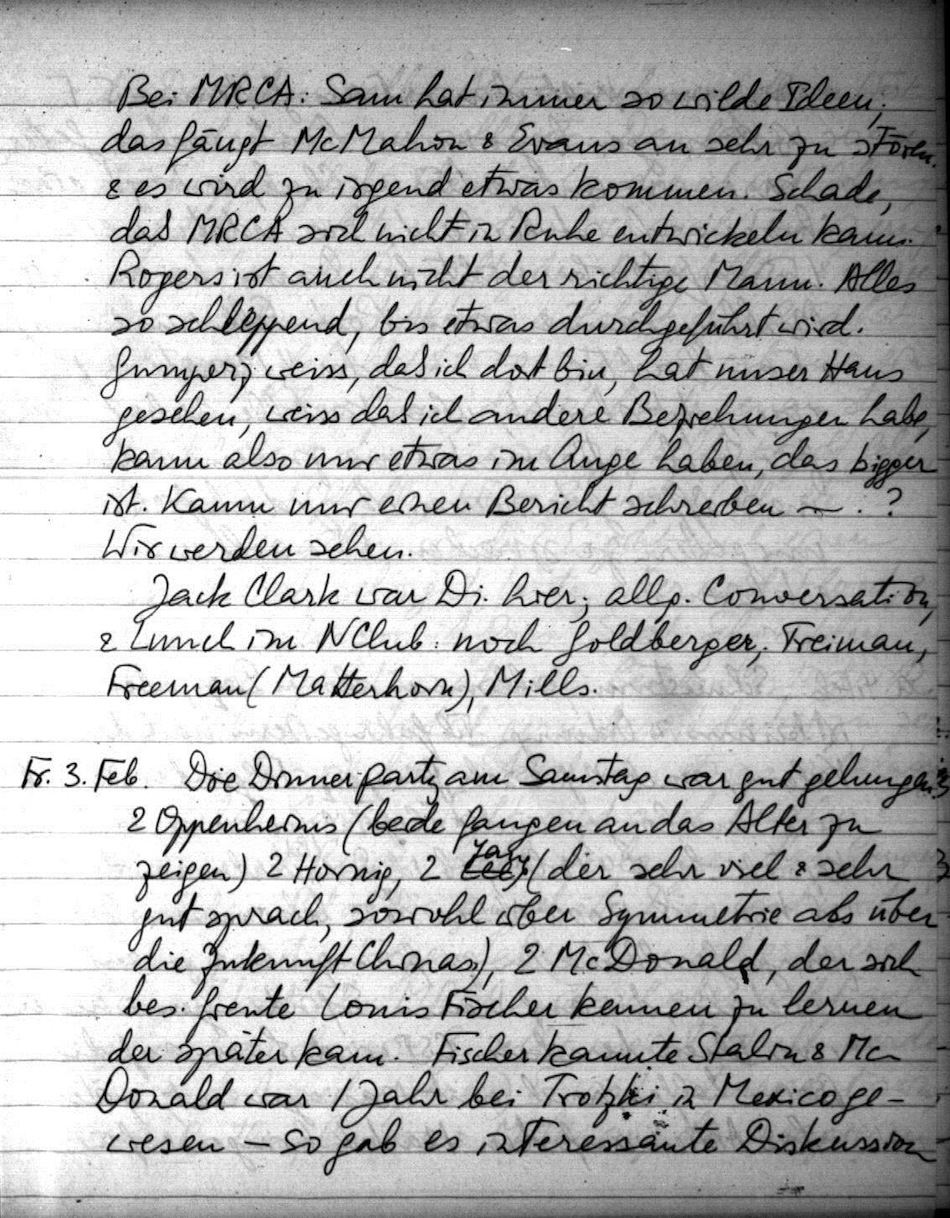 Bei MRCA: Sam hat immer so wilde Ideen,
das fängt McMahon & Evans an sehr zu stören.
& es wird zu irgend etwas kommen. Schade,
daß MRCA sich nicht in Ruhe entwickeln kann.
Rogers ist auch nicht der richtige Mann. Alles
so schleppend, bis etwas durchgeführt wird.
weiss, daß ich dort bin, hat unser Haus
gesehen, weiss daß ich andere Beziehungen habe,
kann also nur etwas im Auge haben, das bigger
ist. Kann mir einen Bericht schreiben — . ?
Wir werden sehen.
Jack Clark war Di. hier; allg. Conversation,
& Lunch im NClub: noch Goldberger, Freiman,
Freeman (Matterhorn), Mills.
Fr. 3. Feb. Die Dinnerparty am Samstag war gut gelungen.
2 Oppenheims (beide fangen an das Alter zu
zeigen) 2 Hornig, 2 Yang (der sehr viel & sehr
gut sprach, sowohl über Symmetrie als über
die Zukunft Chinas), 2 McDonald, der sich
bes. freute Louis Fischer kennen zu lernen
der später kam. Fischer kannte Stalin & Mc
Donald war 1 Jahr bei Trotzki in Mexico ge-
wesen — so gab es interessante Diskussion